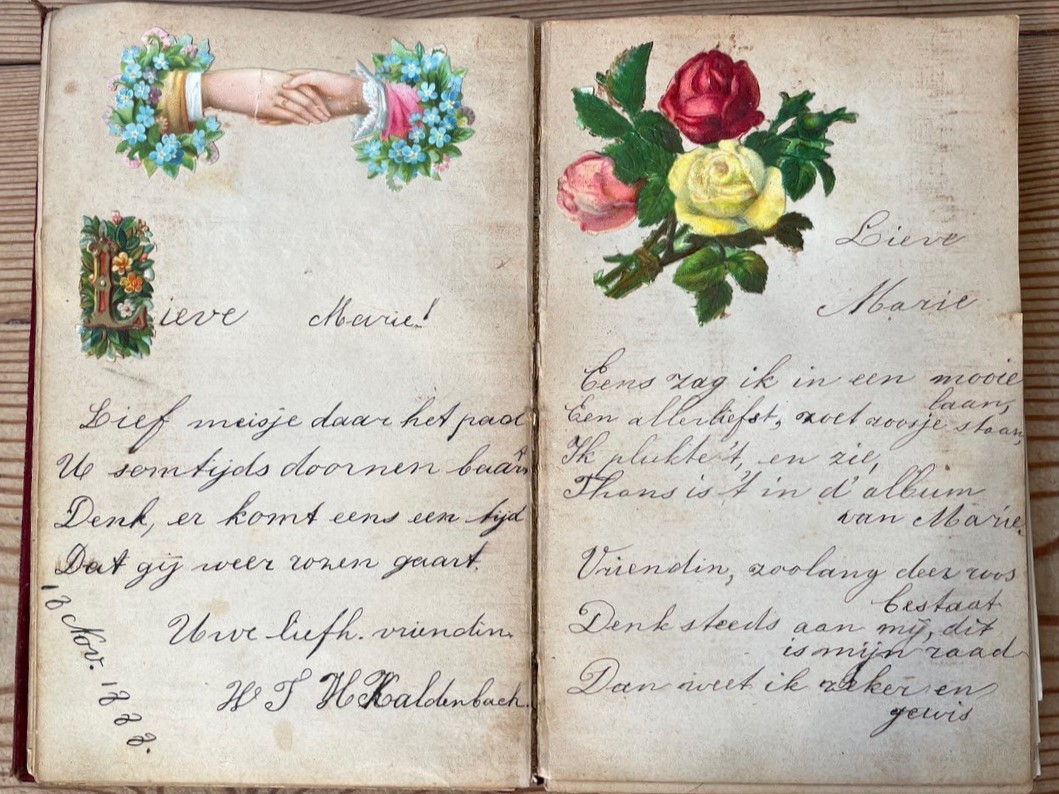 Lieve Marie!
Lief meisje daar het pad
U somtijds doornen baart
Denk, er komt eens een tijd
Dat gij weer rozen gaart.
Uwe liefh. vriendin.
H Kaldenbach.
Nov.
Lieve
Marie
Eens zag ik in een mooie
laan,
Een allerliefst, zoet roosje staan,
Ik plukte 't, en zie,
Thans is 't in d' album
van Marie.
Vriendin, zoolang deez roos
bestaat
Denk steeds aan mij, dit
is mijn raad
Dan weet ik zeker en
gewis